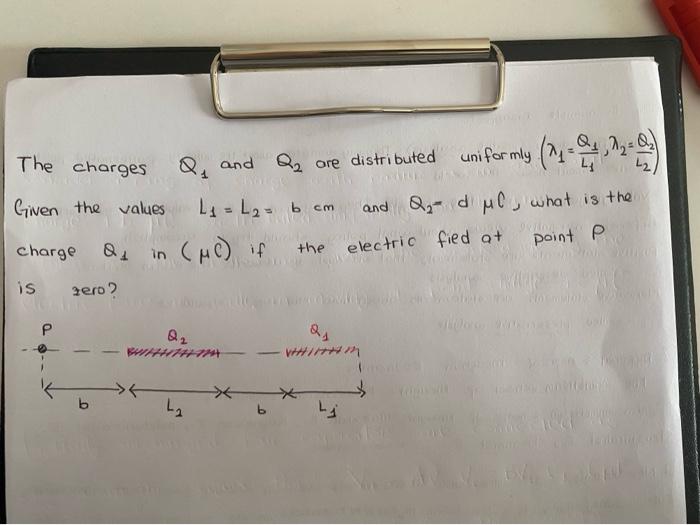 The charges Q₁ and Q₂ are distributed uniformly (λ₁ = Q₁/L₁, λ₂ = Q₂/L₂)
Given the values L₁ = L₂ = b cm and Q₂ = d μC, what is the
charge Q₁ in (μC) if the electric fied at point P
is zero?
P Q₂ Q₁
b L₂ b L₁